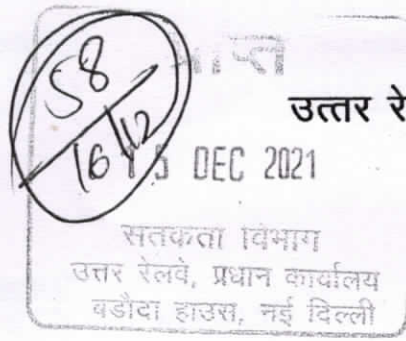 58
16/12
उत्तर रे
15 DEC 2021
सतकता विभाग
उत्तर रेलवे, प्रधान कार्यालय
बडौदा हाउस, नई दिल्ली